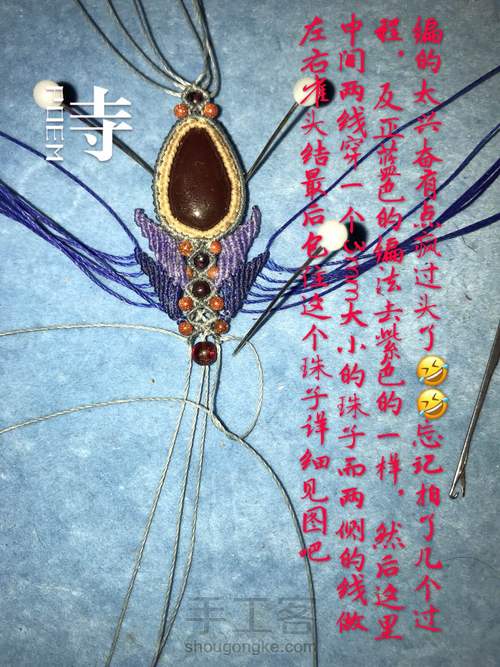 编的太兴奋有点疯过头了🤣🤣忘记拍了几个过
程，反正蓝色的编法去紫色的一样，然后这里
中间两线穿一个3mm大小的珠子而两侧的线做
左右雀头结最后包住这个珠子详细见图吧
寺
POEM
手工客
shougongke.com